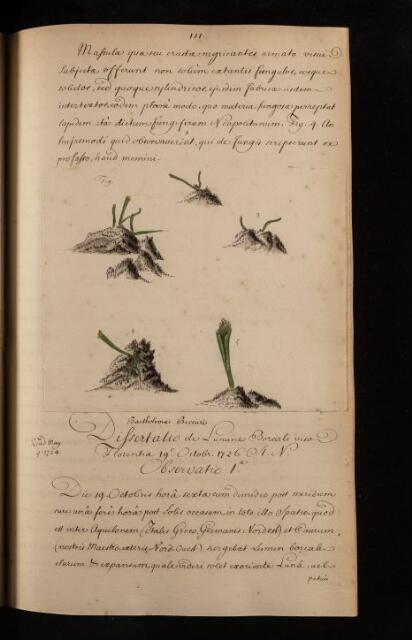 111.
Massula ipsa seu crusta nigricantes armato visui
Subjecta offerunt non solùm extantes fungulos, eosque
solidos, sed quoque cylindricos, ejusdem fabricæ iisdem
intertextos, eodem planè modo, quo materia fungosa perreptat
lapidem ità dictum fungiferum Neapolitanum. Fig. 4. An
hujusmodi quid observaverint, qui de fungis scripserunt ex
professo, haud memini.
Fig.
3
Bartholomæi Beccaris
Dissertatio de Lumine Boreali viso
Florentia 19º Octobr. 1726 S. N.
Observatio 1ª
Read May
9. 1728
Die 19 Octobris horâ sexta cum dimidio post meridiem
sive unâ ferè horâ post Solis occasum, in toto illo Spatio, quod
est inter Aquilonem (Italis Greco, Germanis Nordest) et Caurum,
(nostris Maestro, exteris Nord-Ouest) surgebat Lumen boreale
clarum & expansum, quale videri solet exoriente Lunâ, vel
potiùs